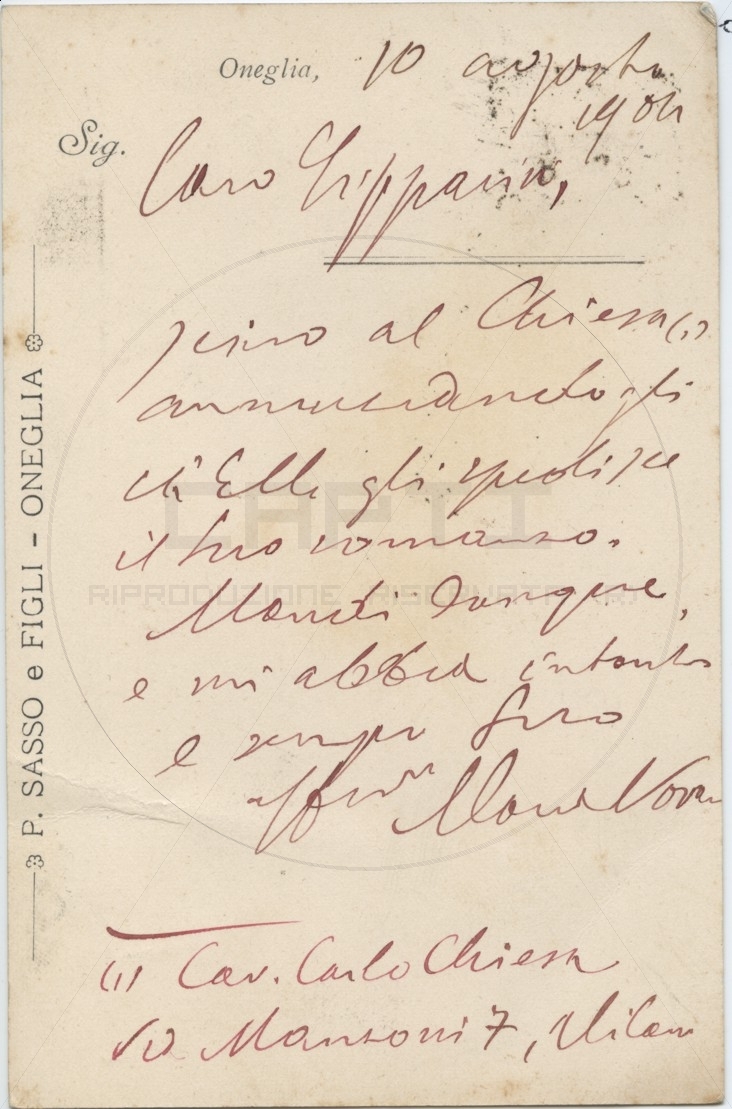 Oneglia, 10 agosto
1904
Sig. Caro Grippario,
scrivo al Chiesa (1)
annunciandogli
ch'Ella gli spedisce
il suo romanzo.
Mandi dunque,
e mi abbia intanto
e sempre suo
aff.mo Mario Novaro
(1) Cav. Carlo Chiesa
Via Manzoni 7, Milano
P. SASSO e FIGLI - ONEGLIA
CAPTI
RIPRODUZIONE RISERVATA (R)